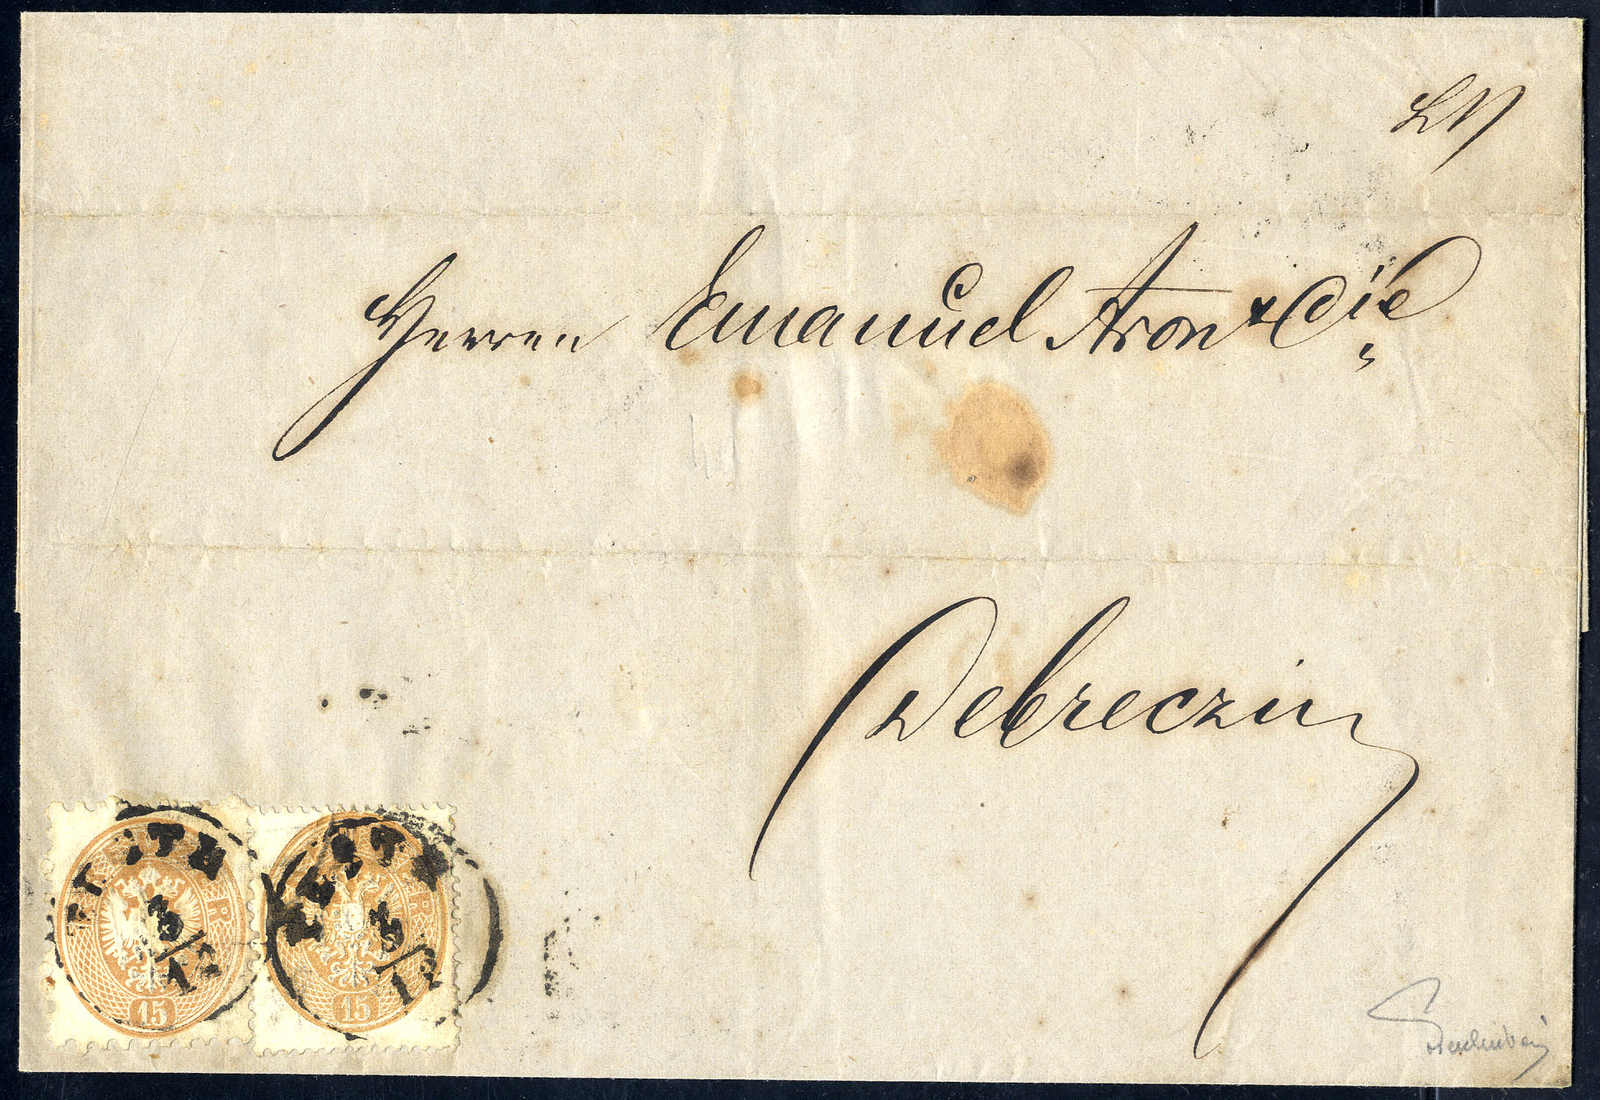 Herren Emanuel Aron & Cie
Debreczin
PESTH
3/12
15
PESTH
3/12
15